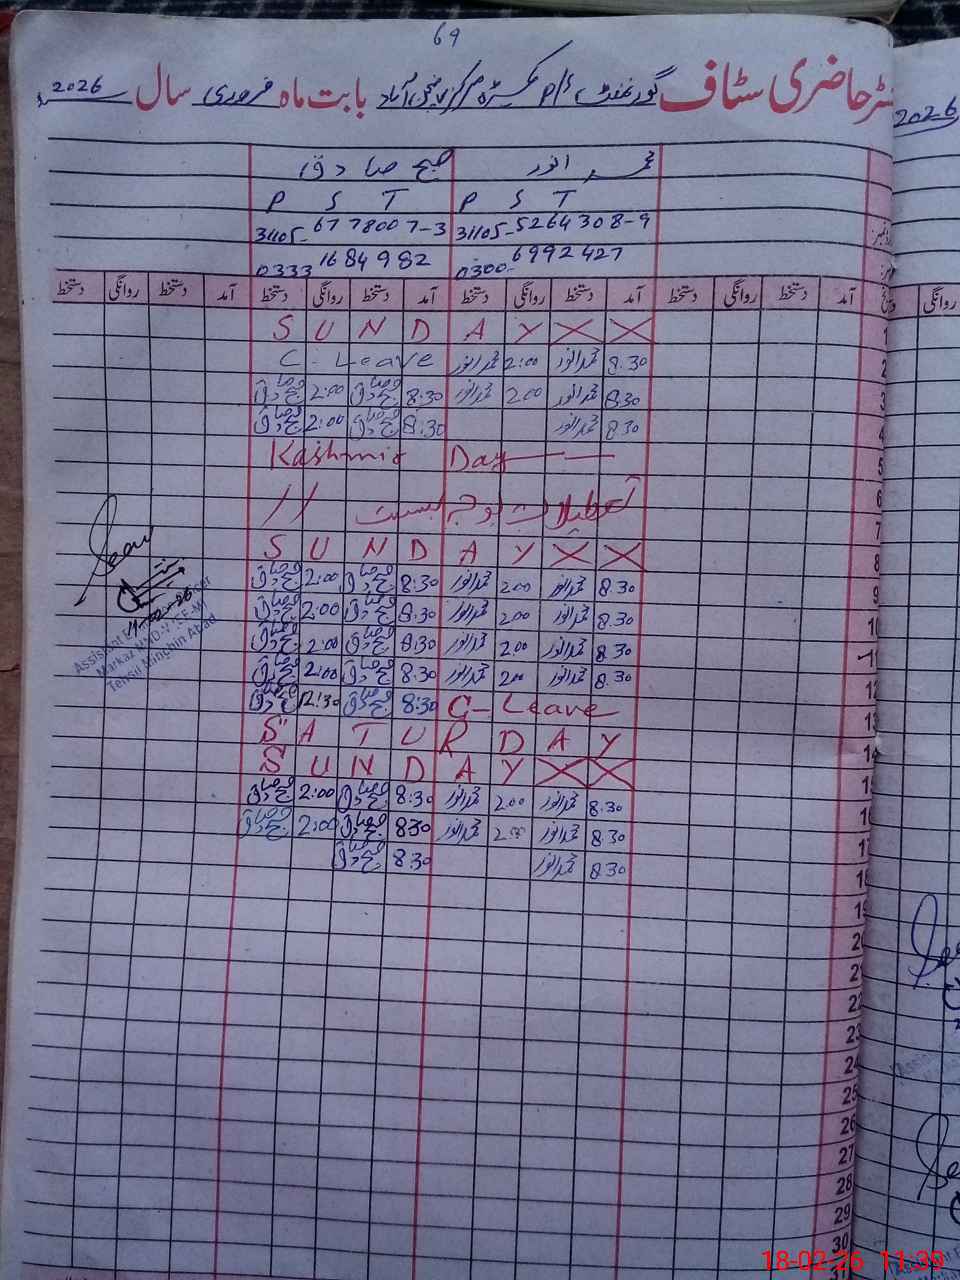 69
رجسٹر حاضری سٹاف گورنمنٹ پ/ا مرکز بابت ماہ فروری سال 2026
2026
محمد انور صبح صادق
P S T P S T
31105-5264308-9 31105-6778007-3
0300-6992427 0333 1684982
آمد دستخط روانگی دستخط آمد دستخط روانگی دستخط آمد دستخط روانگی دستخط آمد دستخط روانگی دستخط
روانگی
1 S U N D A Y X X
2 8.30 محمد انور 2:00 محمد انور C-Leave
3 8.30 محمد انور 2:00 محمد انور 8:30 صبح صادق 2:00 صبح صادق
4 8.30 محمد انور 8:30 صبح صادق 2:00 صبح صادق
5 Kashmir Day
6 تعطیلات بوجہ بسنت //
7
8 S U N D A Y X X
9 8.30 محمد انور 2:00 محمد انور 8:30 صبح صادق 2:00 صبح صادق
10 8.30 محمد انور 2:00 محمد انور 8:30 صبح صادق 2:00 صبح صادق
11 8.30 محمد انور 2:00 محمد انور 8:30 صبح صادق 2:00 صبح صادق
12 8.30 محمد انور 2:00 محمد انور 8:30 صبح صادق 2:00 صبح صادق
13 C-Leave 8:30 صبح صادق 12:30 صبح صادق
14 S A T U R D A Y
15 S U N D A Y X X
16 8.30 محمد انور 2:00 محمد انور 8:30 صبح صادق 2:00 صبح صادق
17 8.30 محمد انور 2:00 محمد انور 8:30 صبح صادق 2:00 صبح صادق
18 8.30 محمد انور 8:30 صبح صادق
19
20
21
22
23
24
25
26
27
28
29
30
Assistant
Markaz
Tehsil Minchin Abad
18-02-26 11:39